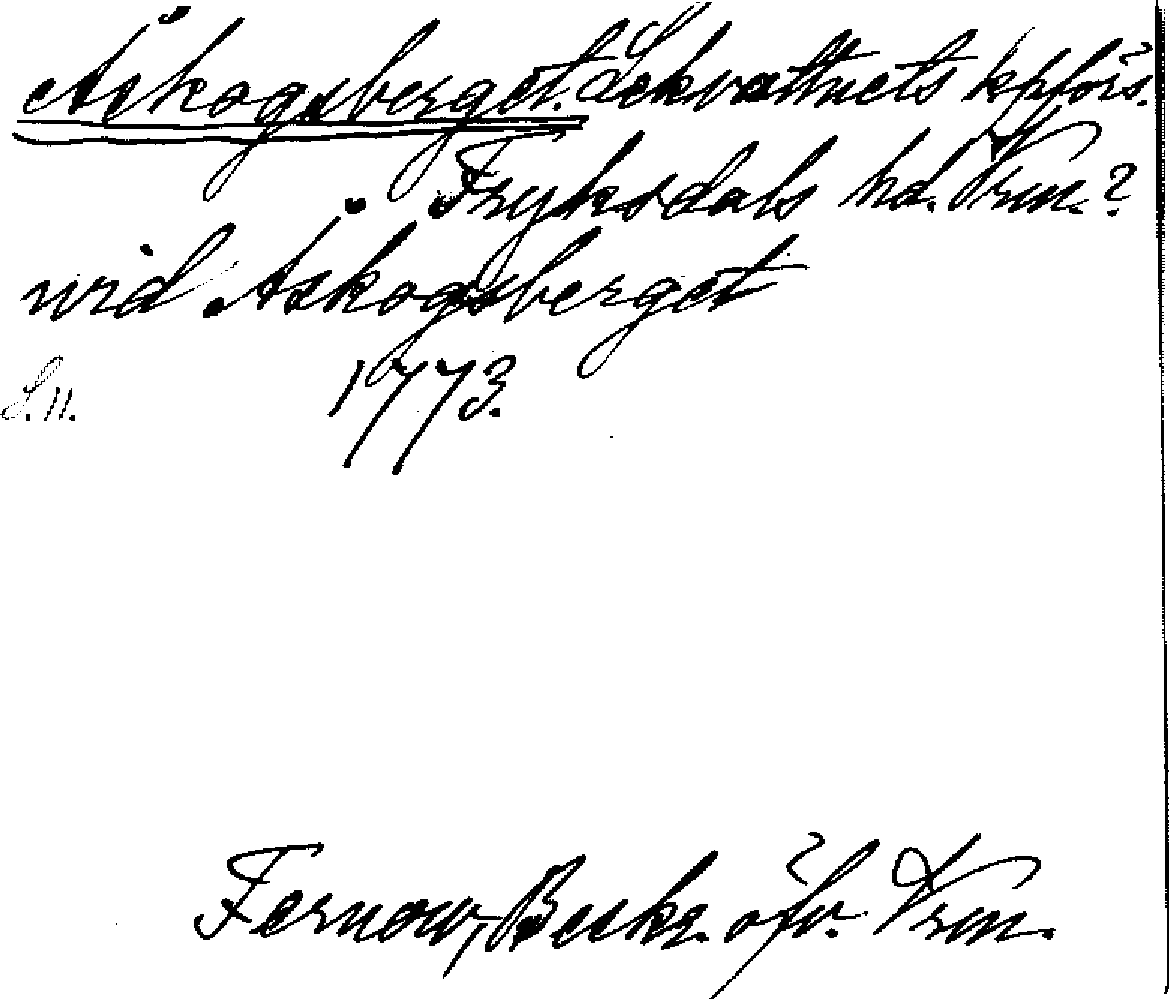 Åskogsberget. Lekvattnets kpförs.
Fryksdals hd. Vrm.?
vid Åskogsberget
S. 11. 1773.
Fernow, Beskr. öfv. Vrm.